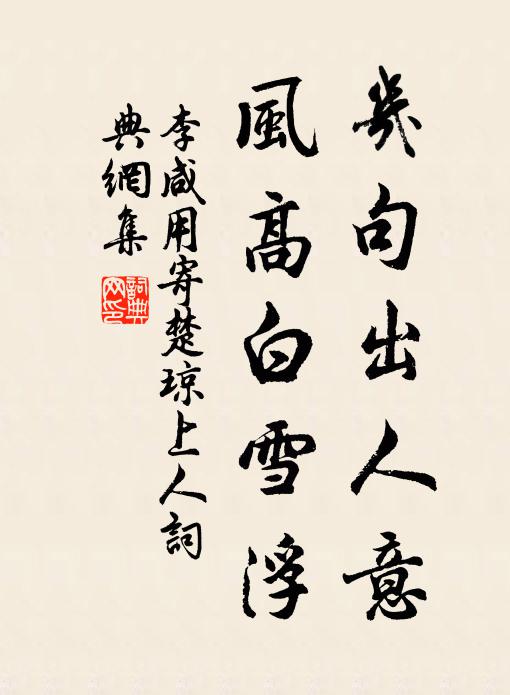 幾句出人意
風高白雪浮
李咸用寄楚琼上人詞
典網集
詞典
网印